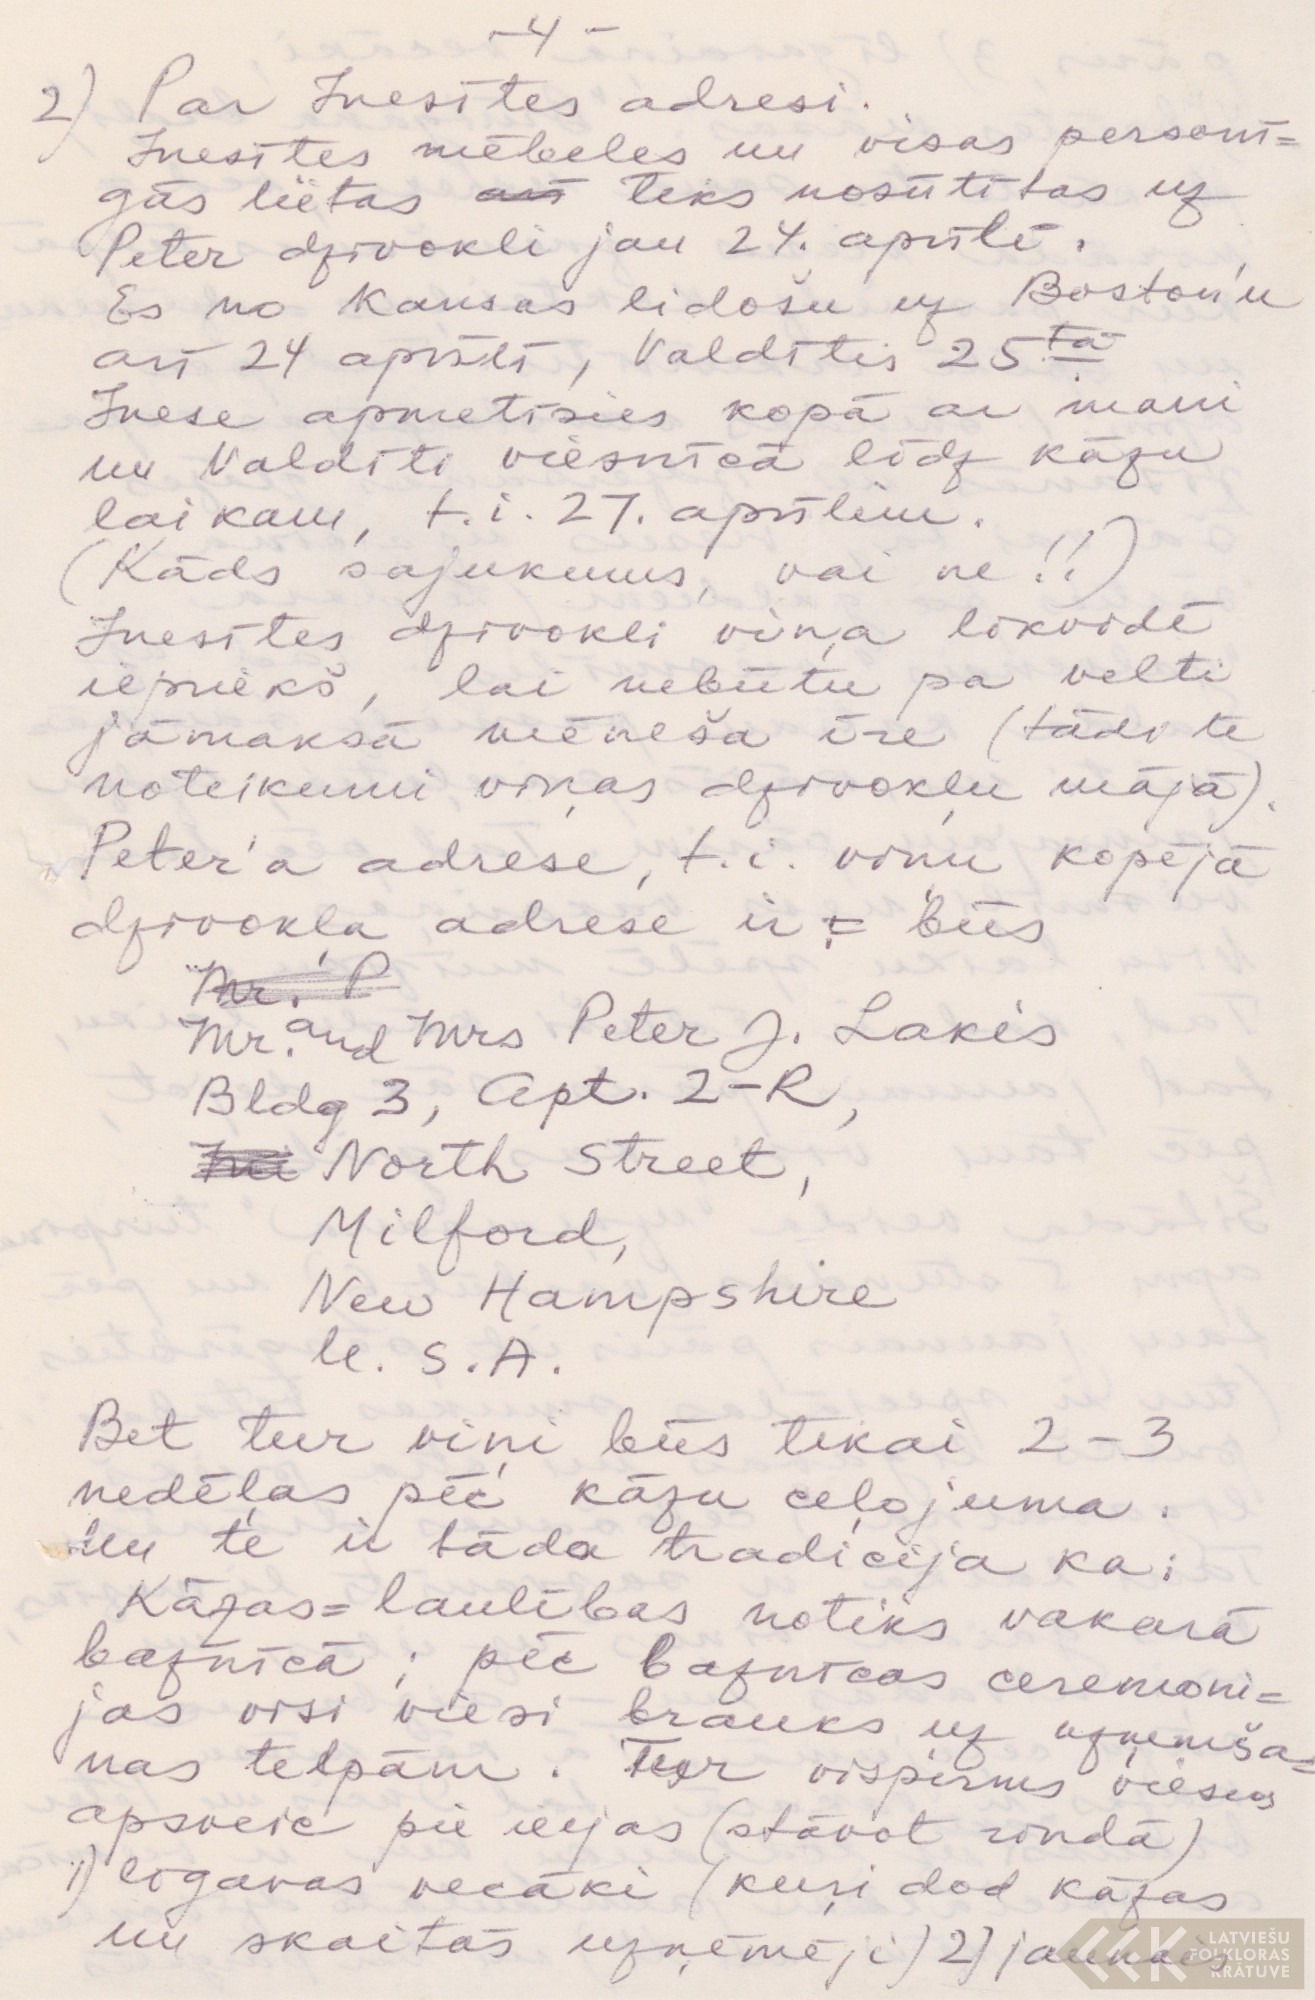 -4-
2) Par Inesītes adresi.
Inesītes mēbeles un visas personī=
gās lietas arī tiks nosūtītas uz
Peter dzīvokli jau 24. aprīlī.
Es no Kansas lidošu uz Boston'u
arī 24 aprīlī, Valdītis 25tā.
Inese apmetīsies kopā ar mani
un Valdīti viesnīcā līdz kāzu
laikam, t.i. 27. aprīlim.
(Kāds sajukums, vai ne!!)
Inesītes dzīvokli viņa likvidē
iepriekš, lai nebūtu pa velti
jāmaksā mēneša īre (tādi te
noteikumi viņas dzīvokļu mājā).
Peter'a adrese, t.i. viņu kopējā
dzīvokļa adrese ir = būs
Mr. P
Mr. and Mrs Peter J. Lakis
Bldg 3, Apt. 2-R,
North Street,
Milford,
New Hampshire
U. S. A.
Bet tur viņi būs tikai 2-3
nedēļas pēc kāzu ceļojuma.
Nu te ir tāda tradīcija ka:
Kāzas=laulības notiks vakarā
baznīcā; pēc baznīcas ceremoni=
jas visi viesi brauks uz uzņemša=
nas telpām. Tur vispirms viesus
apsveic pie ieejas (stāvot rindā)
1) līgavas vecāki (kuŗi dod kāzas
un skaitās uzņēmēji) 2) jaunais
LATVIEŠU
FOLKLORAS
KRĀTUVE